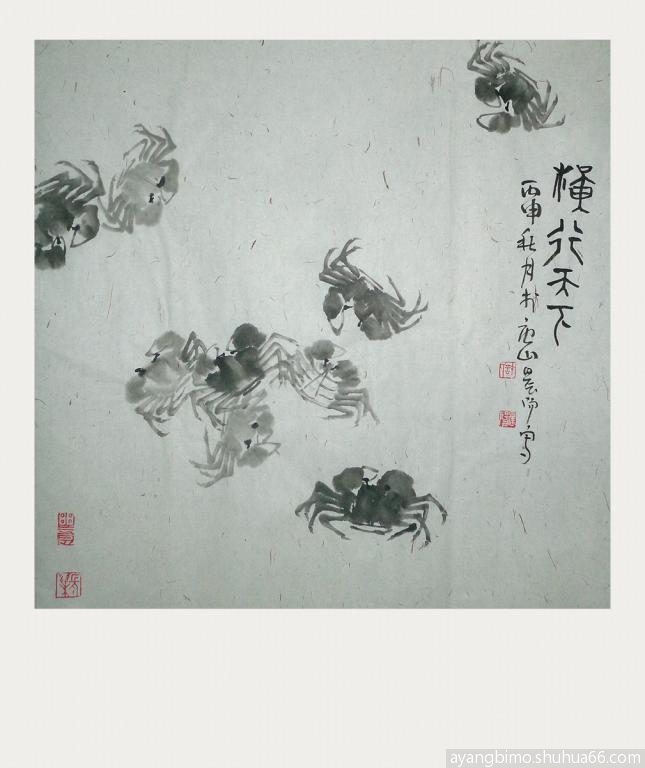 横行天下
丙申秋月于唐山晨阳写
ayangbimo.shuhua66.com